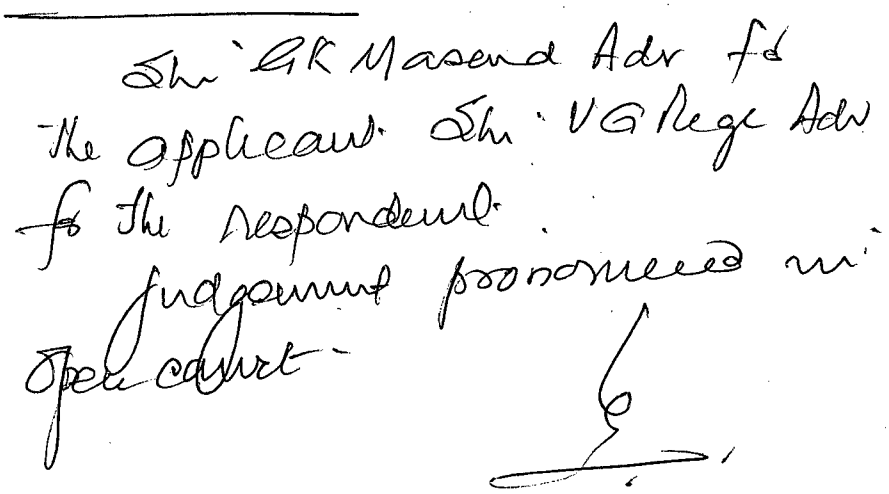 Shri GK Masend Adv fo
the applicant. Shri VG Rege Adv
fo the respondent.
Judgement pronounced in
open court-